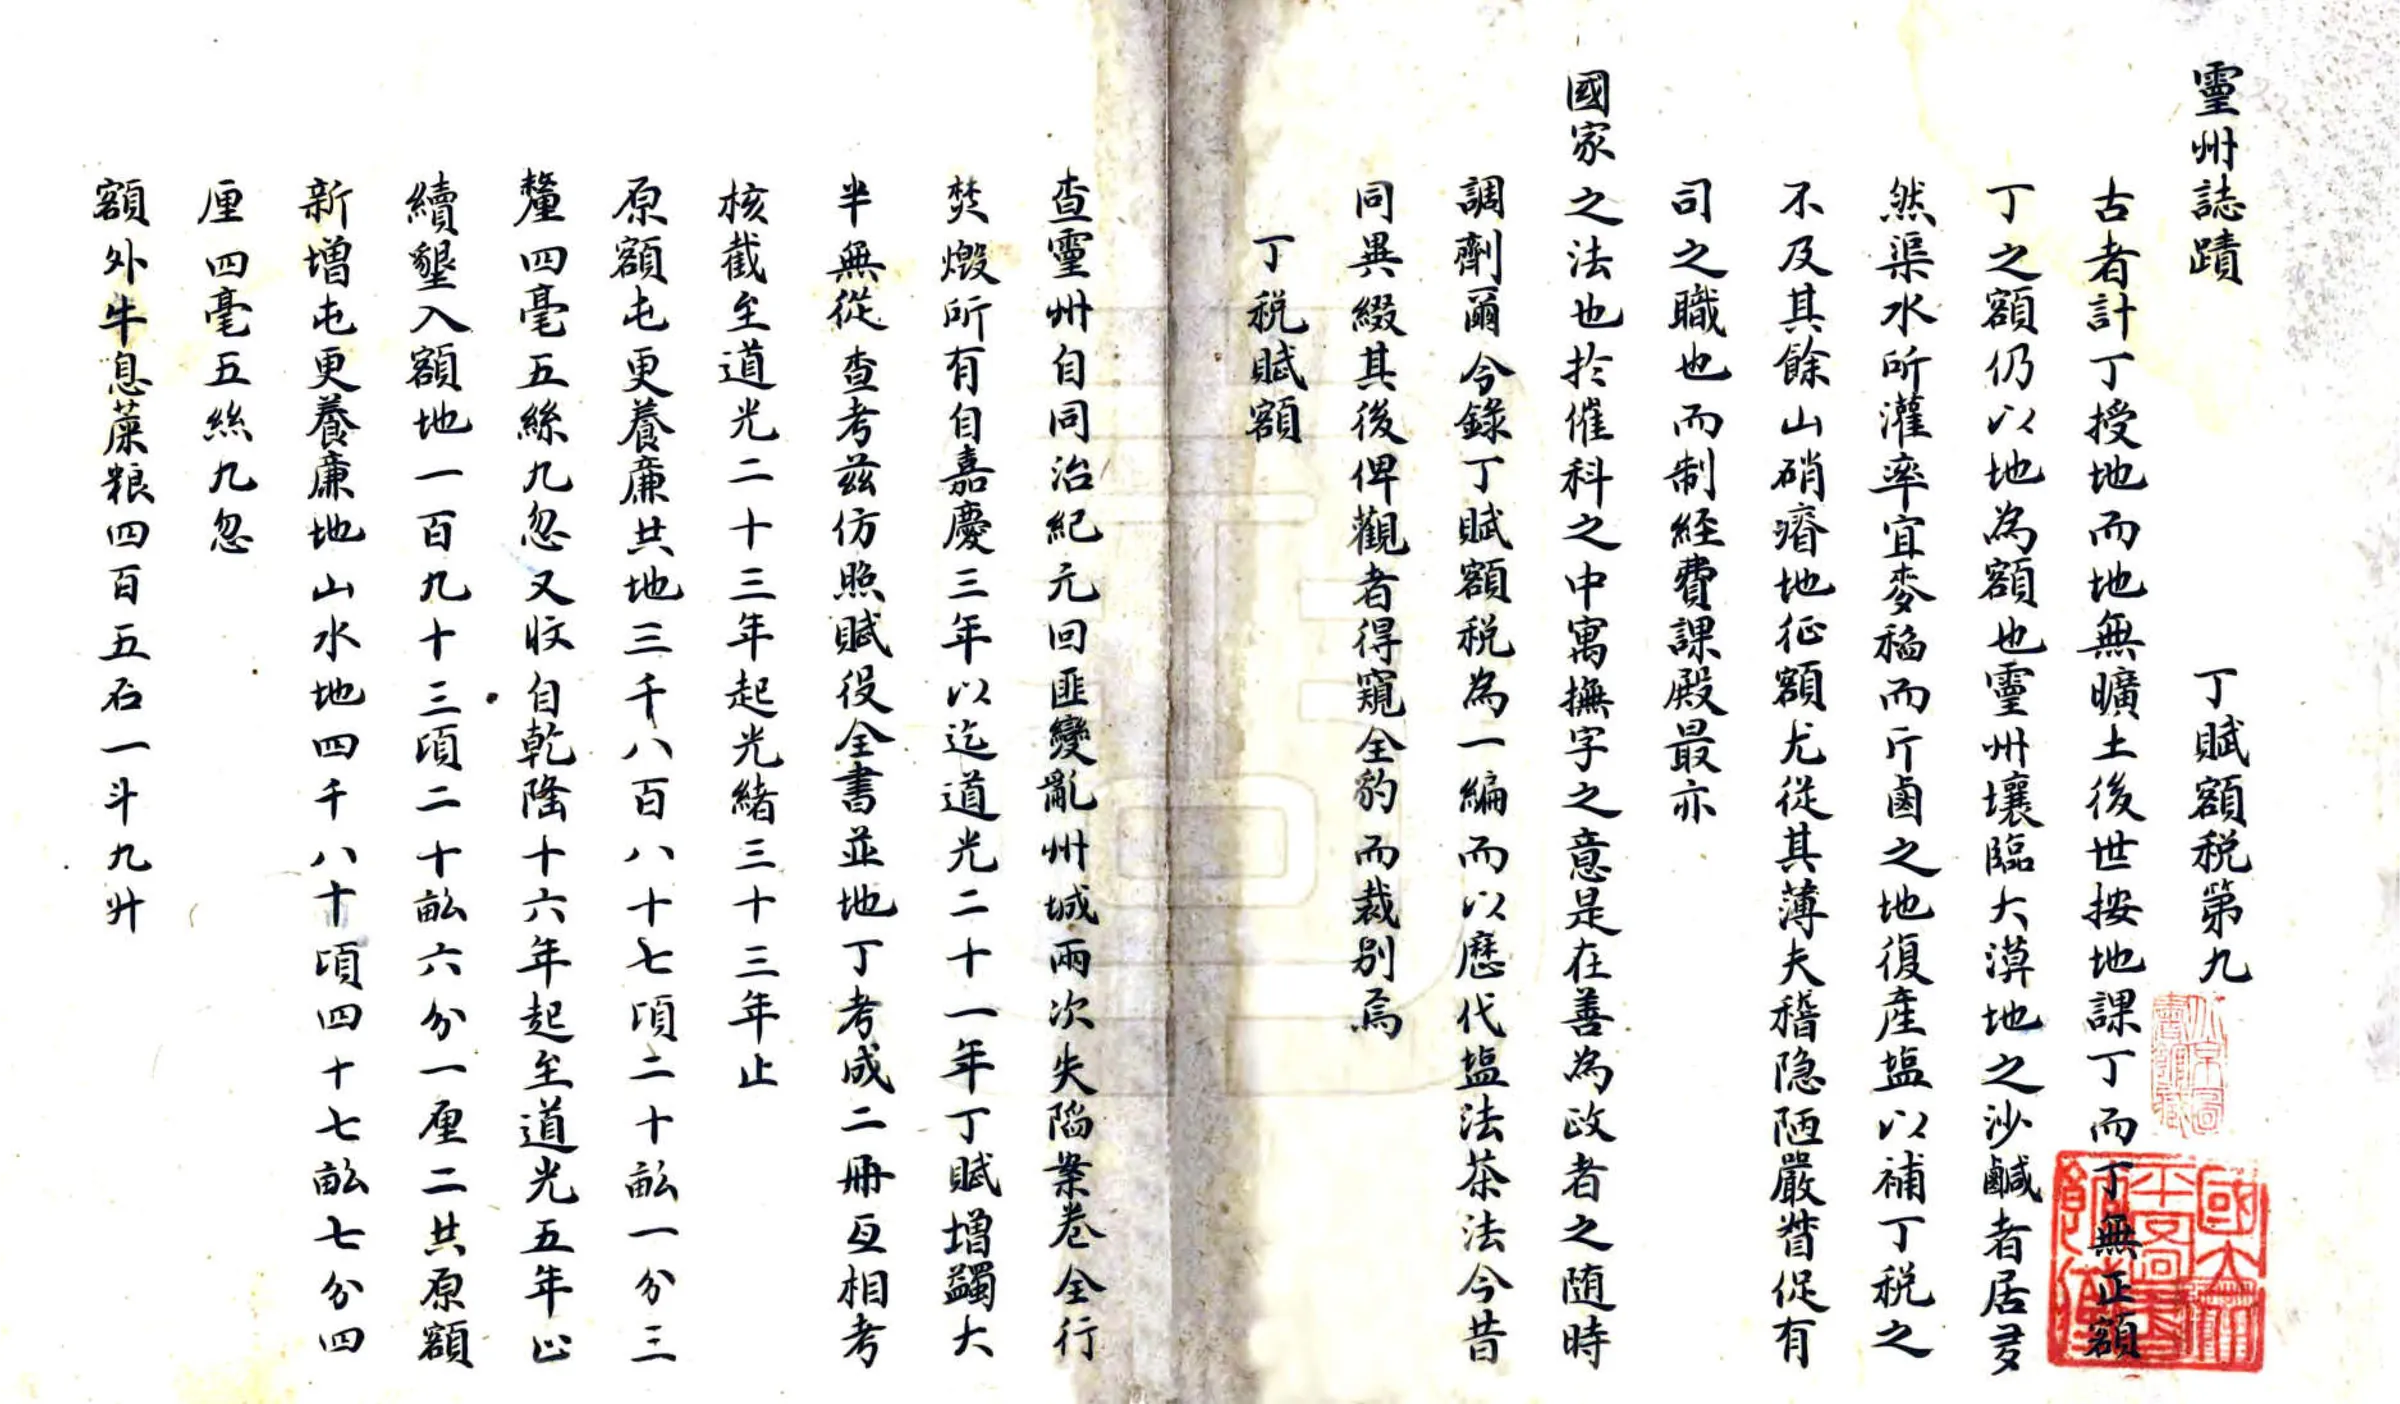 靈州誌蹟　丁賦額税第九
古者計丁授地而地無曠土後世按地課丁而丁無正額
丁之額仍以地為額也靈州壤臨大漠地之沙鹹者居多
然渠水所灌率宜麥稻而斤鹵之地復產塩以補丁税之
不及其餘山硝瘠地征額尤從其薄夫稽隐陋嚴督促有
司之職也而制經費課殿最亦
國家之法也扵催科之中寓撫字之意是在善為政者之随時
調劑爾今錄丁賦額税為一編而以歷代塩法茶法今昔
同異綴其後俾觀者得窺全豹而裁别焉
丁税賦額
查靈州自同治紀元回匪變亂州城兩次失陷案卷全行
焚燬所有自嘉慶三年以迄道光二十一年丁賦增蠲大
半無從查考茲仿照賦役全書並地丁考成二冊互相考
核截至道光二十三年起光緒三十三年止
原額屯更養廉共地三千八百八十七頃二十畝一分三
釐四毫五絲九忽又收自乾隆十六年起至道光五年止
續墾入額地一百九十三頃二十畝六分一厘二共原額
新增屯更養廉地山水地四千八十頃四十七畝七分四
厘四毫五絲九忽
額外牛息菉粮四百五石一斗九升
國立北平圖書館收藏